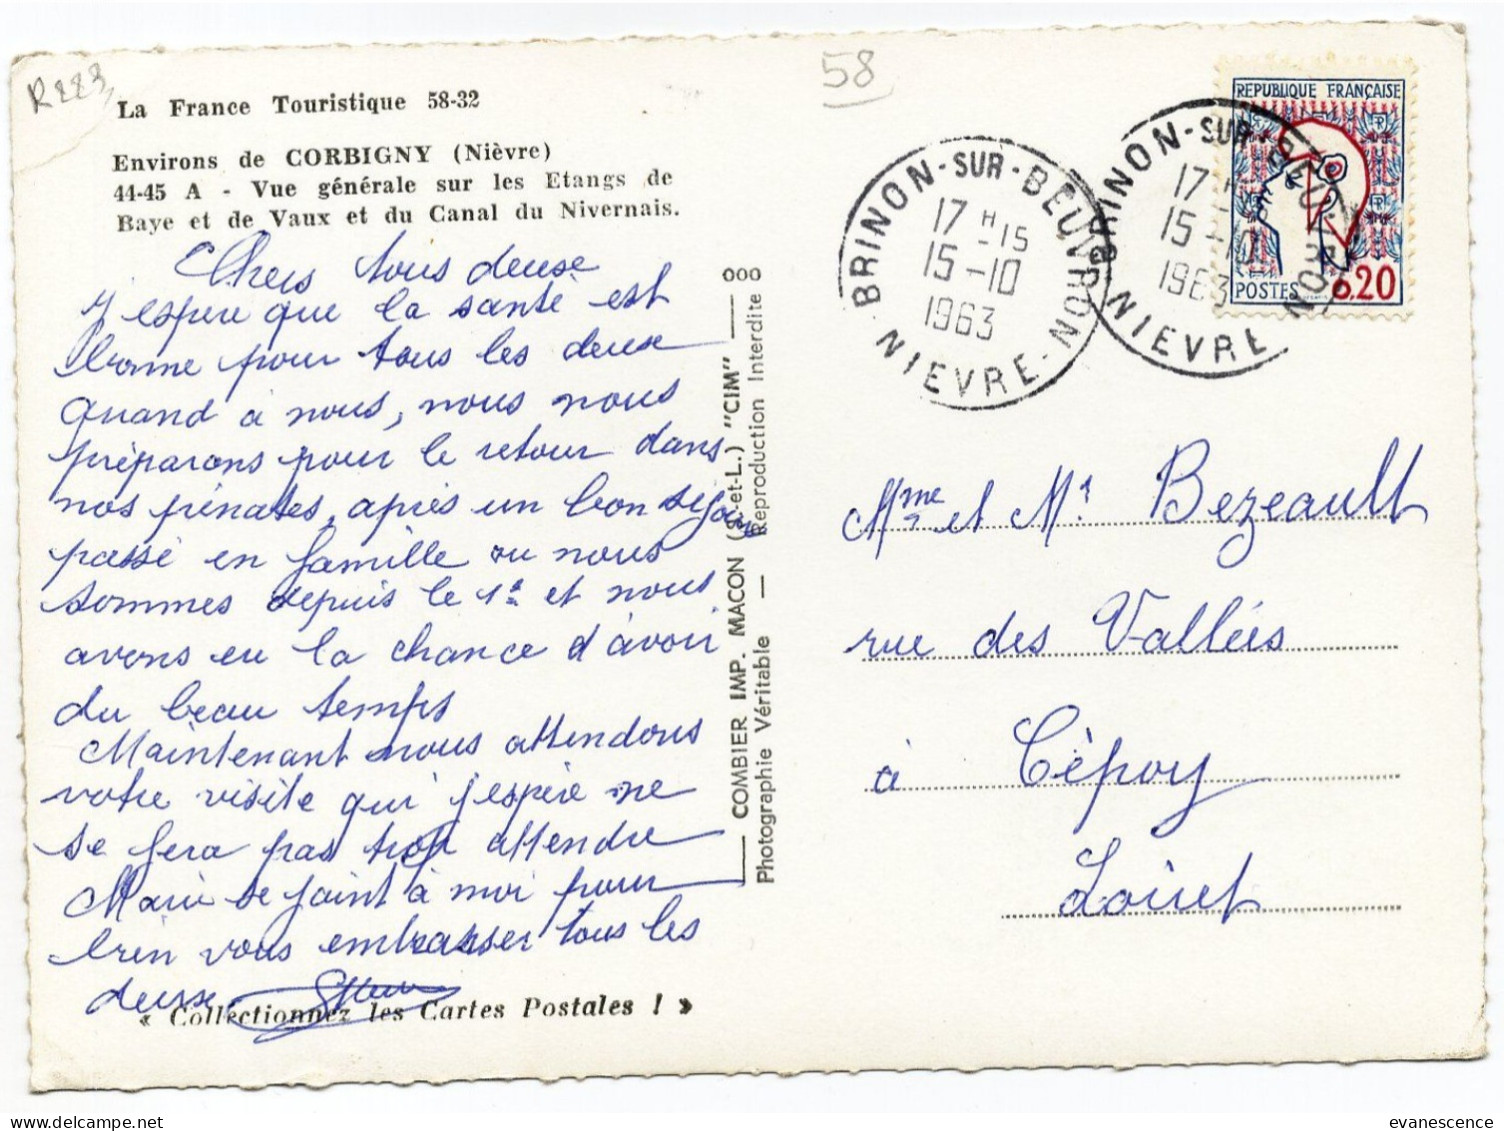 R223
La France Touristique 58-32
Environs de CORBIGNY (Nièvre)
44-45 A - Vue générale sur les Etangs de
Baye et de Vaux et du Canal du Nivernais.
Chers tous deuse
J'espere que la santé est
bonne pour tous les deuse
quand à nous, nous nous
préparons pour le retour dans
nos pénates, après un bon séjour
passé en famille ou nous
sommes depuis le 1er et nous
avons eu la chance d'avoir
du beau temps
Maintenant nous attendons
votre visite qui j'espère ne
se fera pas trop attendre
Marie se joint à moi pour
bien vous embrasser tous les
deuse
« Collectionnez les Cartes Postales ! »
COMBIER IMP. MACON (S.-et-L.) "CIM" ooo
Photographie Véritable — Reproduction Interdite
58
BRINON-SUR-BEUVRON
17 H 15
15-10
1963
NIEVRE
BRINON-SUR-BEUVRON
17 H
15-10
1963
NIEVRE
REPUBLIQUE FRANÇAISE
POSTES 0,20
Mme et Mr Bezeault
rue des Vallées
à Cèpoy
Loiret
evanescence